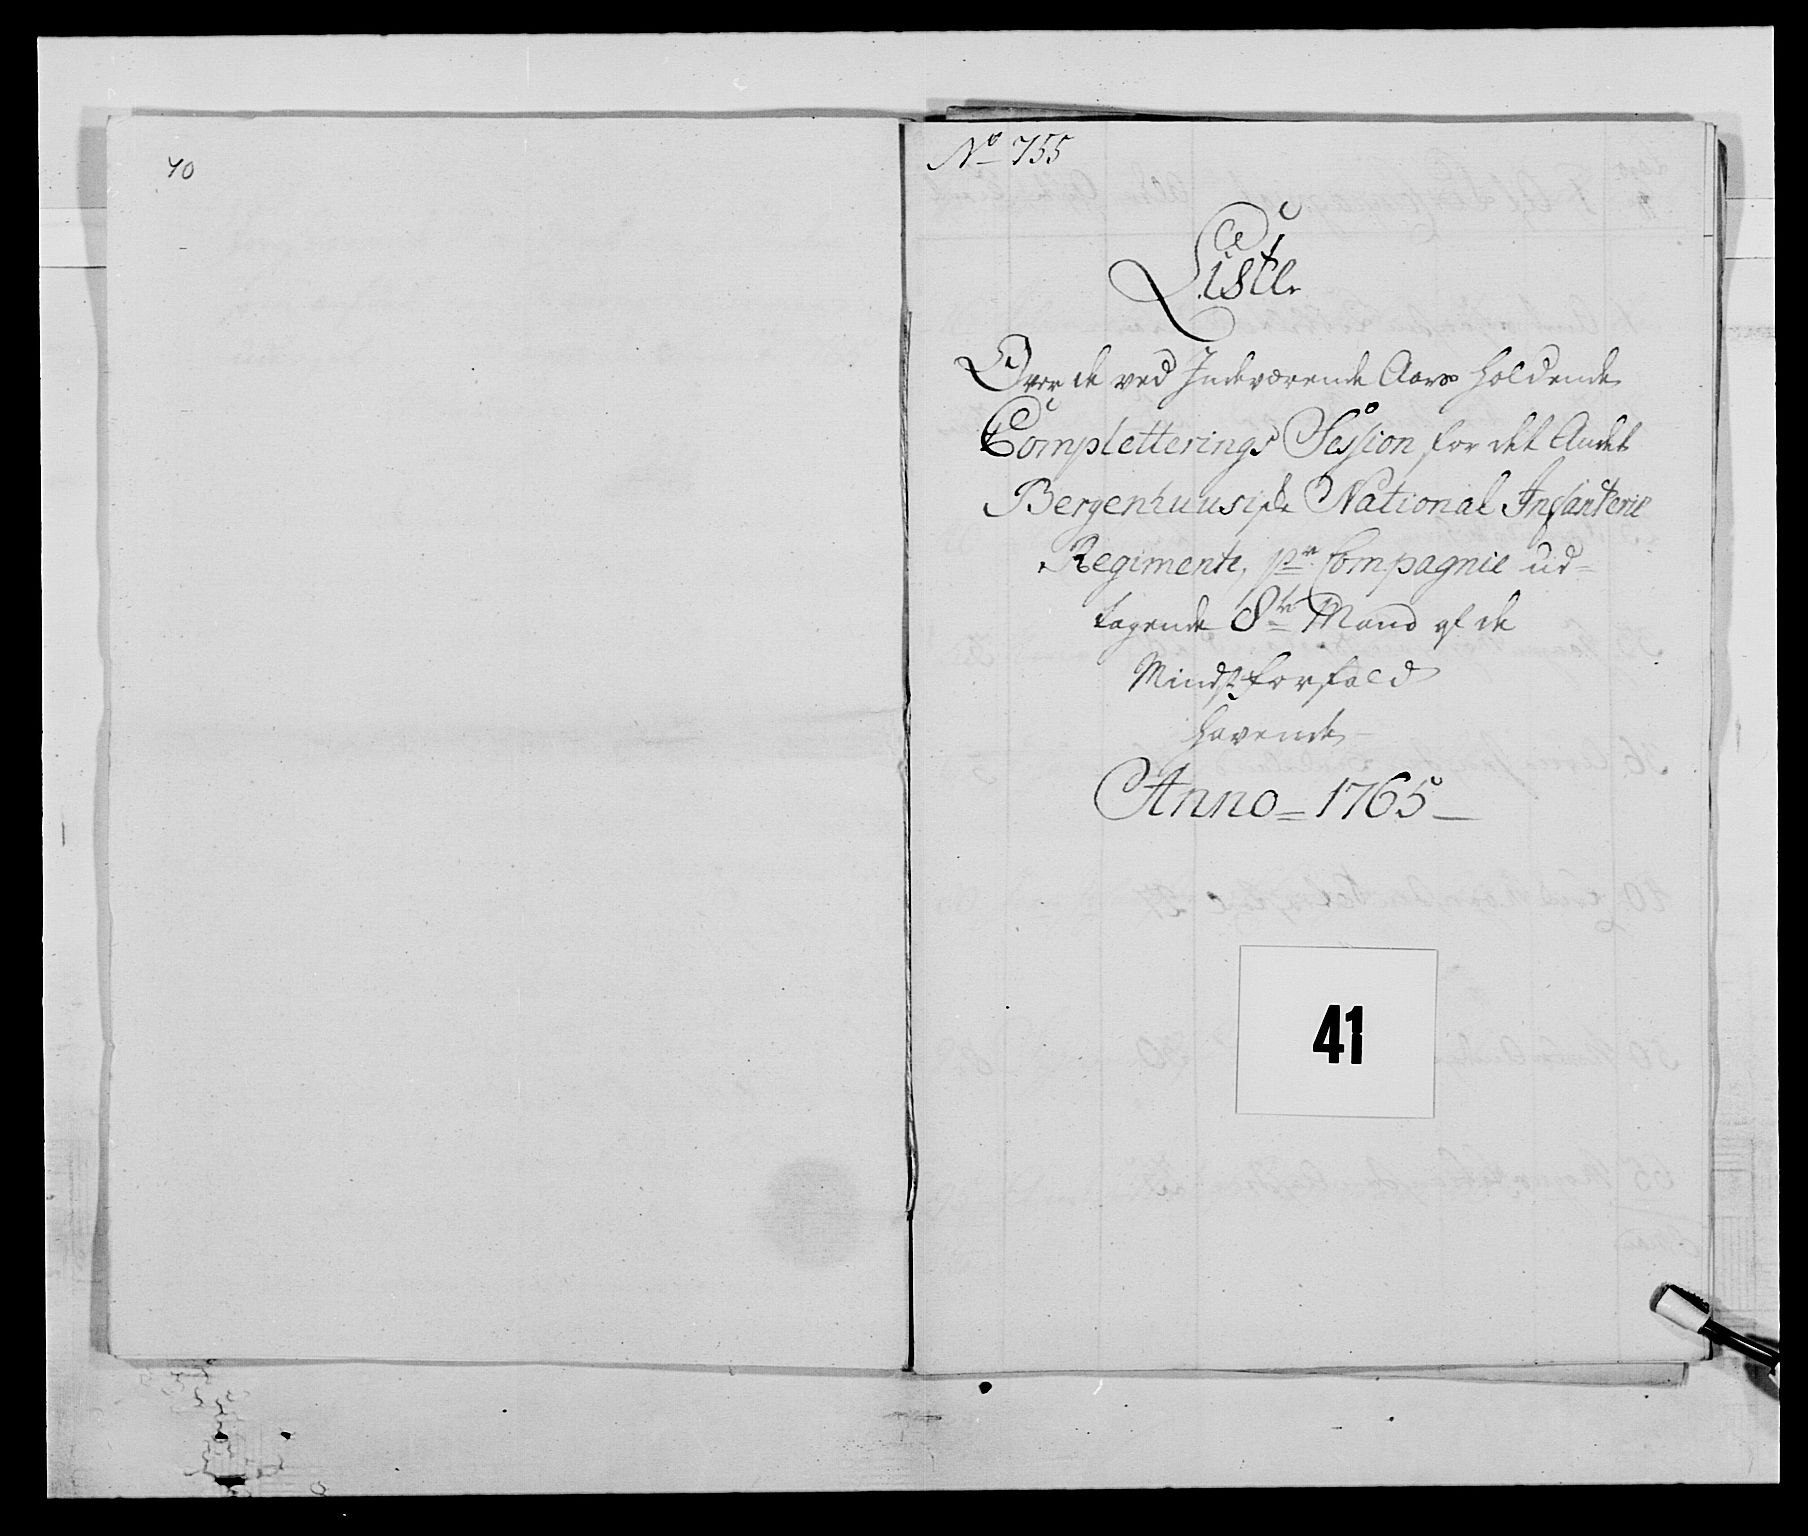 40
No 755
Liste
Over de ved Indeværende Aars holdende
Completterings Session for det Andet
Bergenhuusiske National Infanterie
Regimente, pr Compagnie ud=
tagende 8te Mand af de
Mindst forfald
havende
Anno = 1765
41